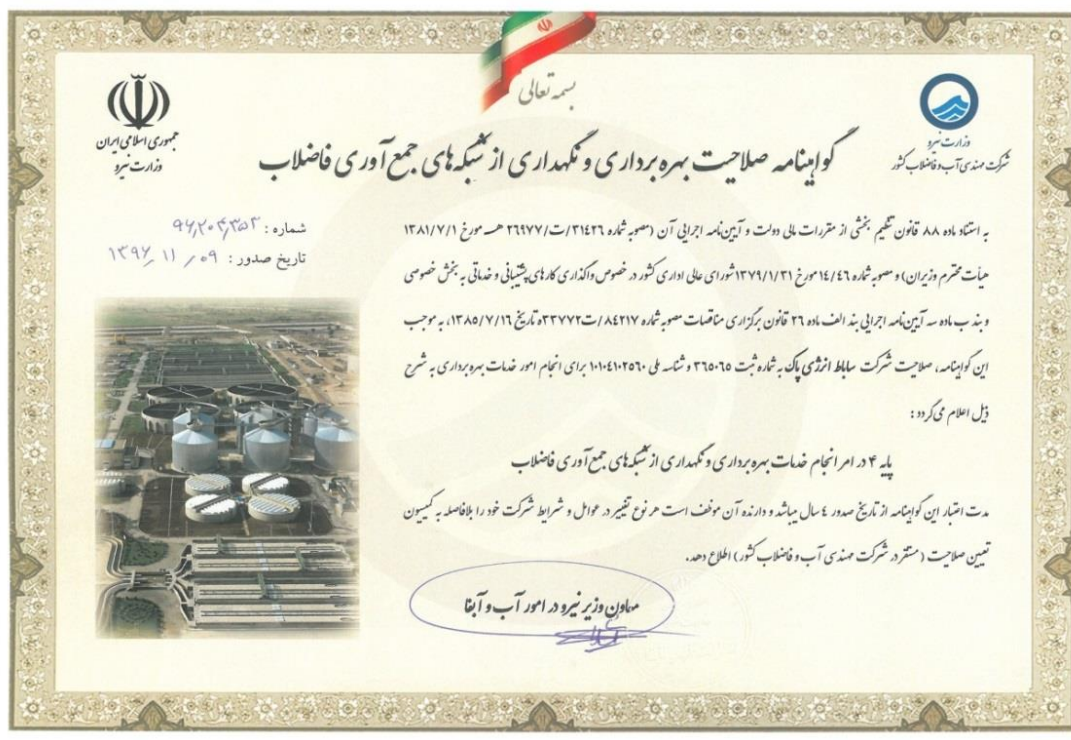 بسمه تعالی
جمهوری اسلامی ایران
وزارت نیرو
وزارت نیرو
شرکت مهندسی آب و فاضلاب کشور
گواهینامه صلاحیت بهره برداری و نگهداری از شبکه های جمع آوری فاضلاب
شماره : ۹۶٫۲۰۴٫۳۵۳
تاریخ صدور : ۱۳۹۶ ٫ ۱۱ ٫ ۰۹
به استناد ماده ۸۸ قانون تنظیم بخشی از مقررات مالی دولت و آیین‌نامه اجرایی آن (مصوبه شماره ۳۱۴۲۶/ت/۲۶۹۷۷ هـ مورخ ۱۳۸۱/۷/۱
هیأت محترم وزیران) و مصوبه شماره ۱۴/۴۶ مورخ ۱۳۷۹/۱/۳۱ شورای عالی اداری کشور در خصوص واگذاری کارهای پشتیبانی و خدماتی به بخش خصوصی
و بند ب ماده سه آیین‌نامه اجرایی بند الف ماده ۲۶ قانون برگزاری مناقصات مصوبه شماره ۸۴۲۱۷/ت۳۳۷۷۲ه تاریخ ۱۳۸۵/۷/۱۶، به موجب
این گواهینامه، صلاحیت شرکت ساباط انرژی پاک به شماره ثبت ۳۶۵۰۶۵ و شناسه ملی ۱۰۱۰۴۱۰۲۵۶۰ برای انجام امور خدمات بهره برداری به شرح
ذیل اعلام می گردد :
پایه ۴ در امر انجام خدمات بهره برداری و نگهداری از شبکه های جمع آوری فاضلاب
مدت اعتبار این گواهینامه از تاریخ صدور ۴ سال میباشد و دارنده آن موظف است هر نوع تغییر در عوامل و شرایط شرکت خود را بلافاصله به کمیسیون
تعیین صلاحیت (مستقر در شرکت مهندسی آب و فاضلاب کشور) اطلاع دهد.
معاون وزیر نیرو در امور آب و آبفا